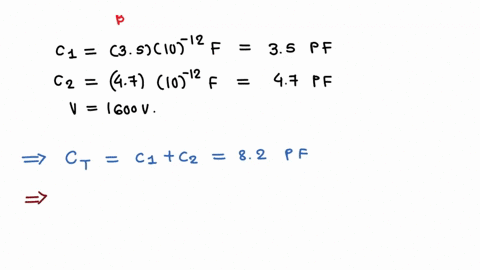 p
C1 = (3.5)(10)^-12 F = 3.5 PF
C2 = (4.7) (10)^-12 F = 4.7 PF
V = 1600 V.
⇒ CT = C1 + C2 = 8.2 PF
⇒